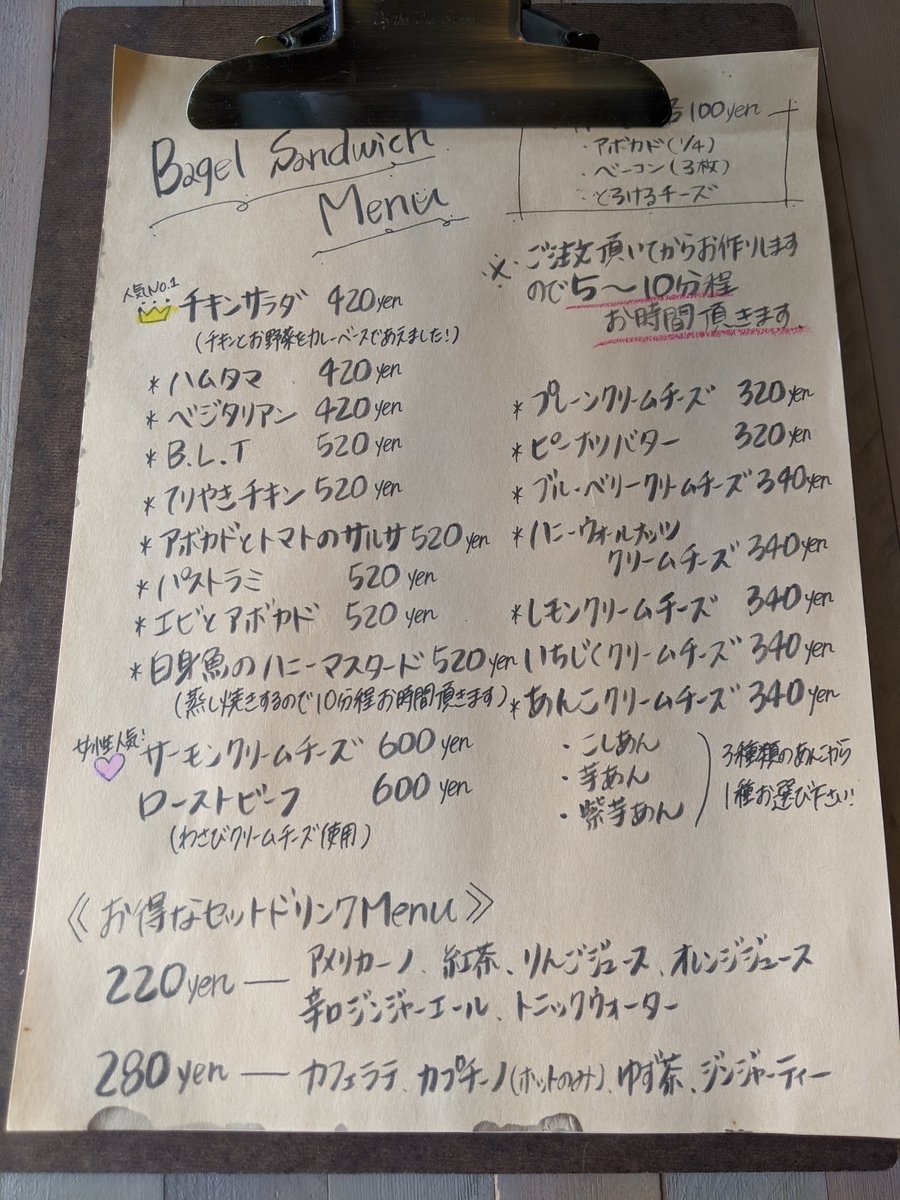 Bagel Sandwich
Menu
100yen
・アボカド(1/4)
・ベーコン(3枚)
・とろけるチーズ
※ご注文頂いてからお作りします
ので5〜10分程
お時間頂きます。
人気No.1
チキンサラダ 420yen
(チキンとお野菜をカレーベースであえました!)
* ハムタマ 420yen
* ベジタリアン 420yen
* B.L.T 520yen
* テリやきチキン 520yen
* アボカドとトマトのサルサ 520yen
* パストラミ 520yen
* エビとアボカド 520yen
* 白身魚のハニーマスタード 520yen
(蒸し焼きするので10分程お時間頂きます)
女性人気!
サーモンクリームチーズ 600yen
ローストビーフ 600yen
(わさびクリームチーズ使用)
* プレーンクリームチーズ 320yen
* ピーナツバター 320yen
* ブルーベリークリームチーズ 340yen
* ハニーウォールナッツ
クリームチーズ 340yen
* レモンクリームチーズ 340yen
いちじくクリームチーズ 340yen
* あんこクリームチーズ 340yen
・こしあん
・芋あん
・紫芋あん
3種類のあんこから
1種お選び下さい!
《お得なセットドリンクMenu》
220yen — アメリカーノ、紅茶、りんごジュース、オレンジジュース
辛口ジンジャーエール、トニックウォーター
280yen — カフェラテ、カプチーノ(ホットのみ)、ゆず茶、ジンジャーティー